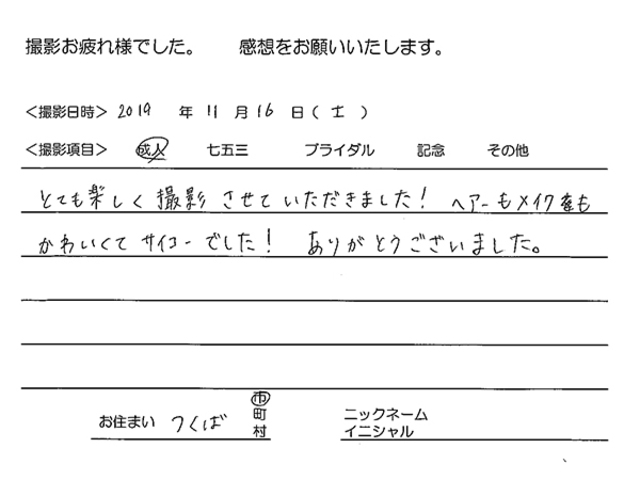 撮影お疲れ様でした。 感想をお願いいたします。
＜撮影日時＞ 2019 年 11 月 16 日（ 土 ）
＜撮影項目＞ 成人 七五三 ブライダル 記念 その他
とても楽しく撮影させていただきました！ ヘアーもメイクも
かわいくてサイコーでした！ ありがとうございました。
お住まい つくば 市
町
村
ニックネーム
イニシャル